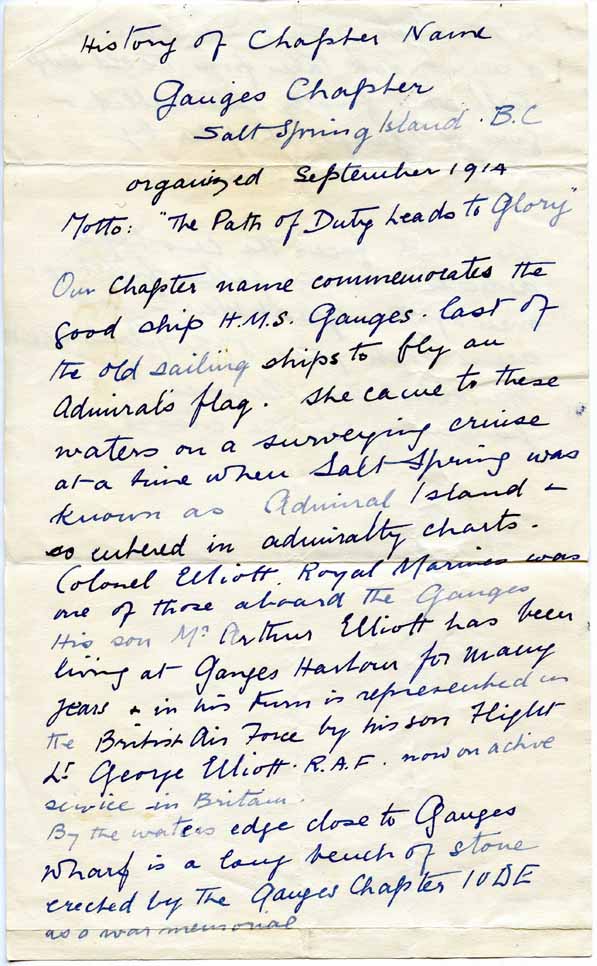 History of Chapter Name
Ganges Chapter
Salt Spring Island . B.C
organized September 1914
Motto: "The Path of Duty Leads to Glory"
Our Chapter name commemorates the
good ship H.M.S. Ganges. last of
the old sailing ships to fly an
Admiral's flag. She came to these
waters on a surveying cruise
at a time when Salt Spring was
known as Admiral Island &
so entered in admiralty charts.
Colonel Elliott. Royal Marines was
one of those aboard the Ganges
His son Mr Arthur Elliott has been
living at Ganges Harbour for many
years & in his turn is represented in
the British Air Force by his son Flight
Lt George Elliott. R.A.F. now on active
service in Britain.
By the waters edge close to Ganges
Wharf is a long bench of stone
erected by the Ganges Chapter IODE
as a war memorial